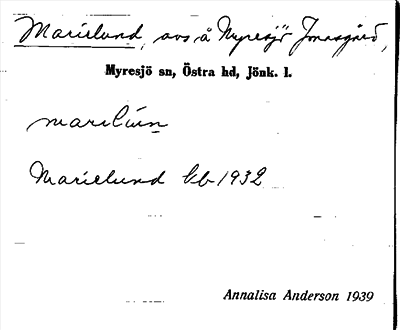 Marielund, avs å Myresjö Jonasgård,
Myresjö sn, Östra hd, Jönk. l.
marilún
Marielund kb 1932
Annalisa Anderson 1939